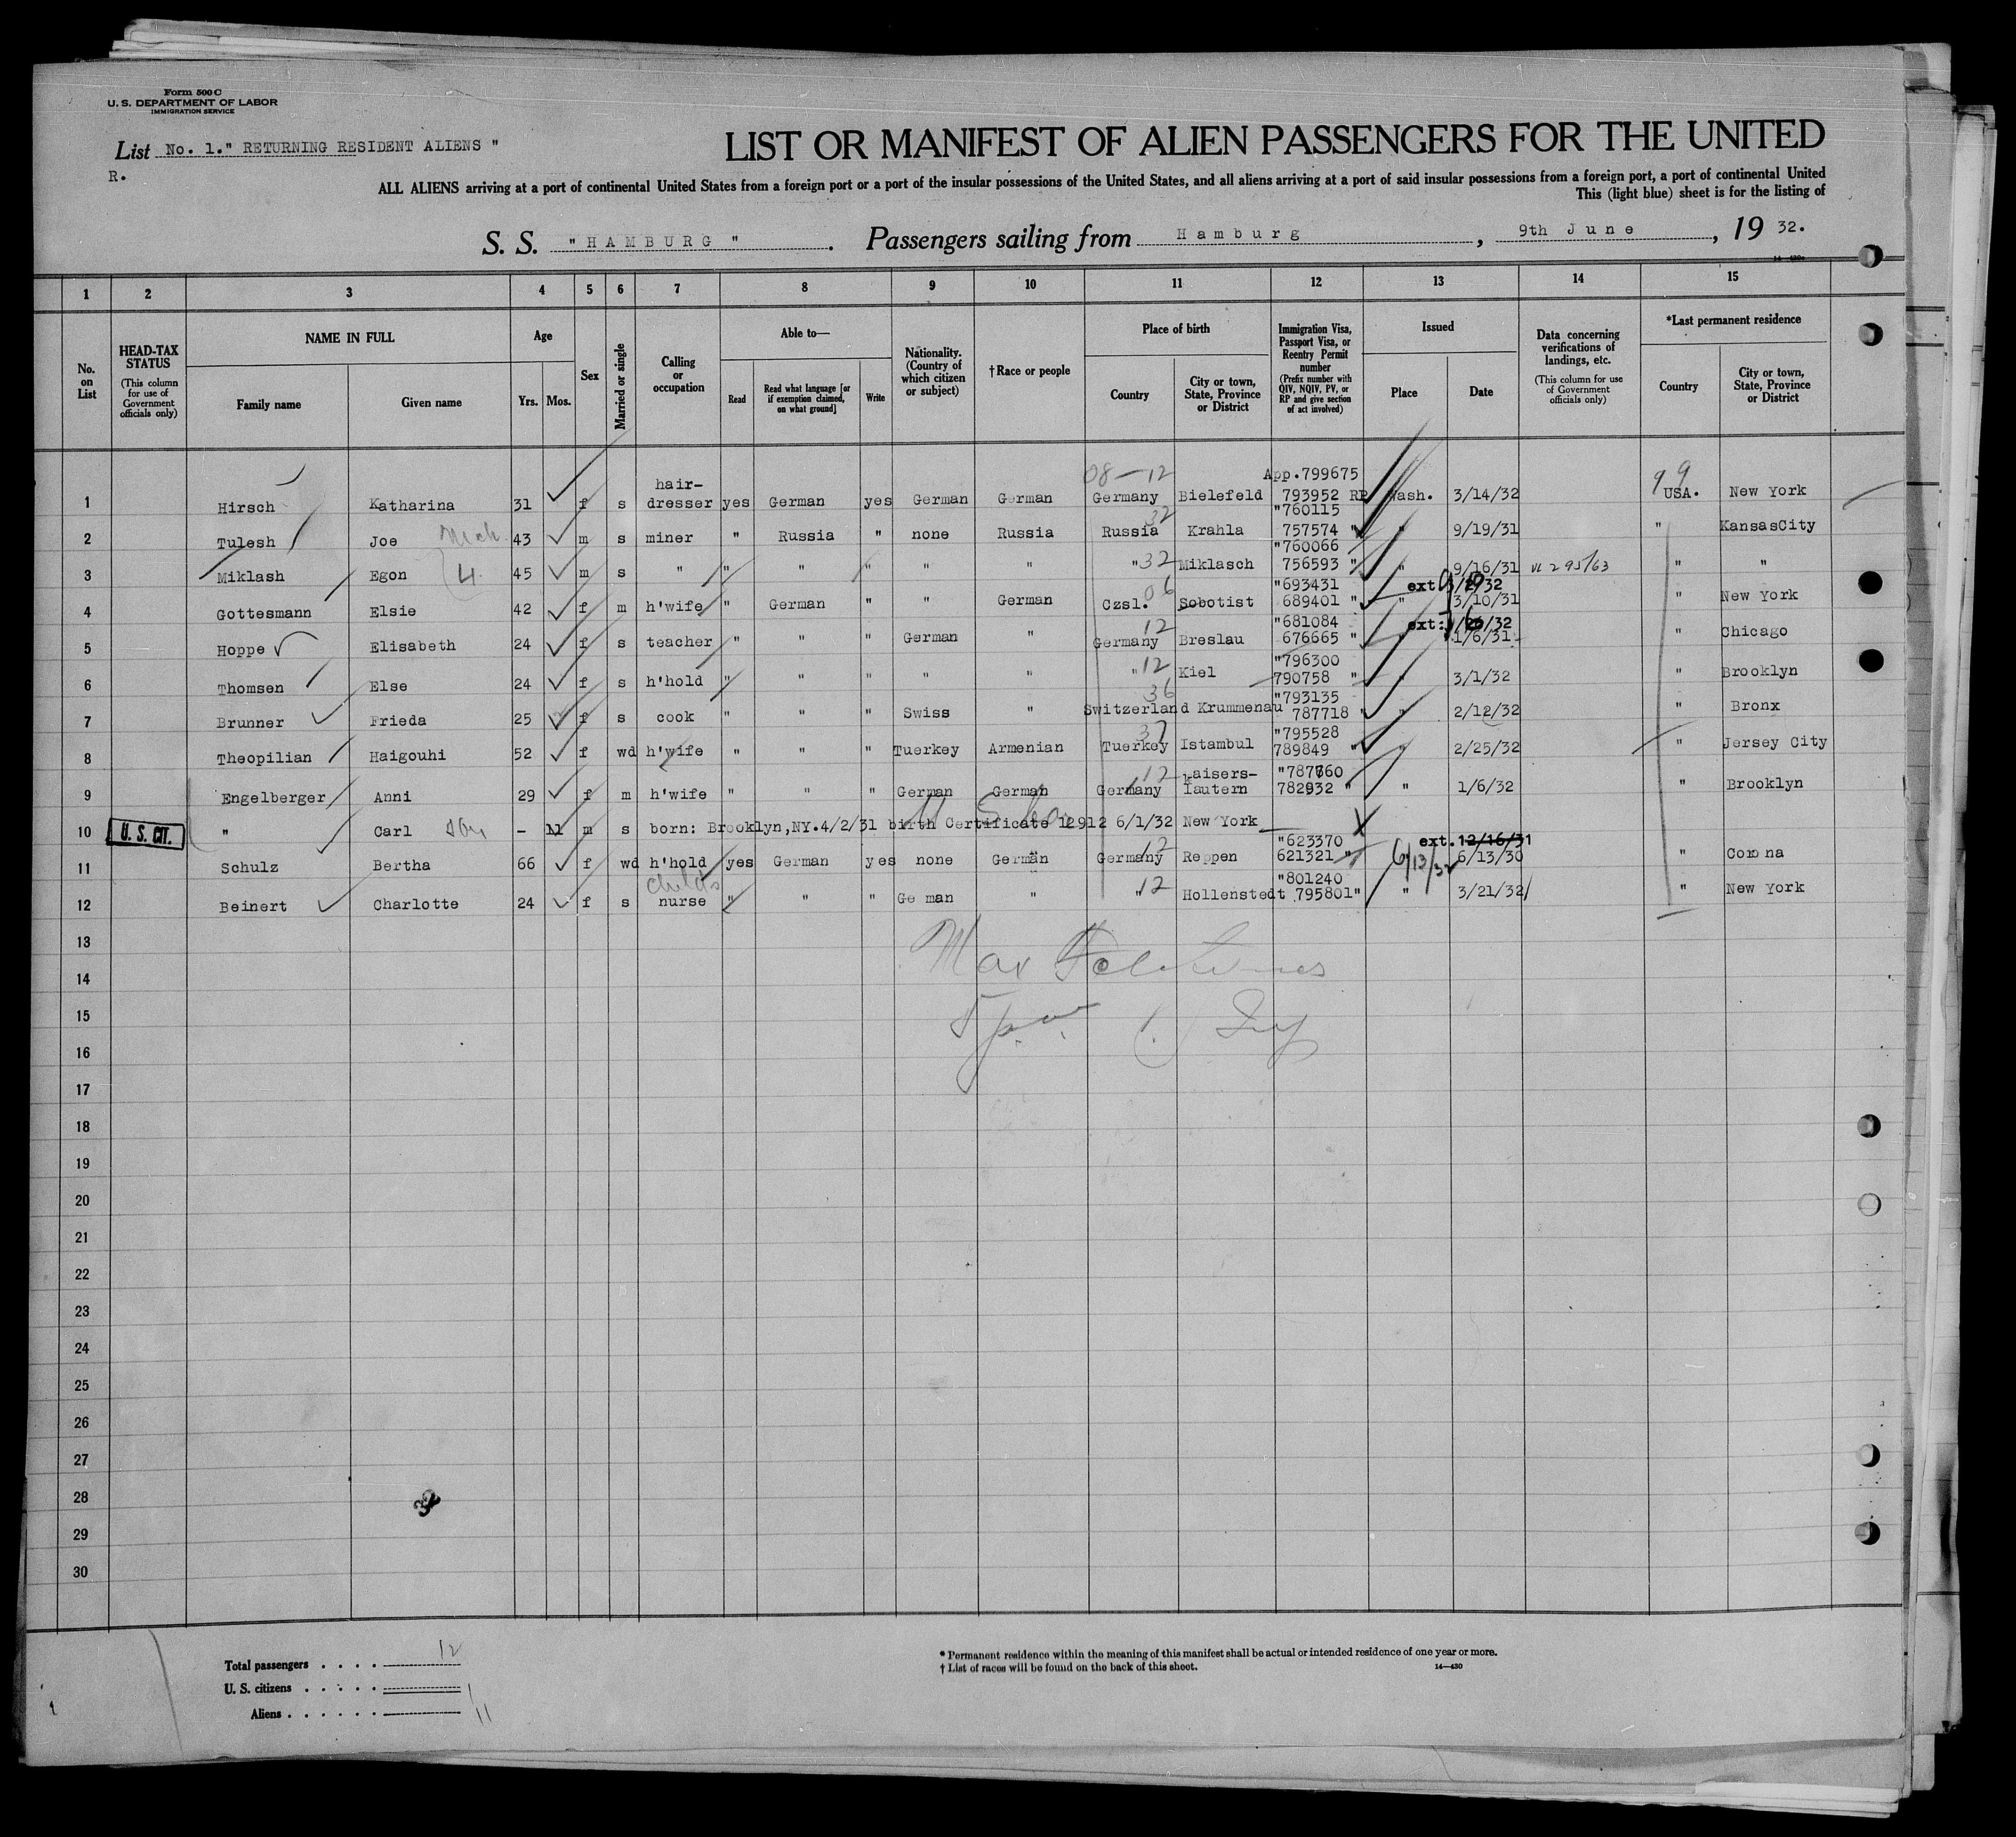 Form 500 C
U. S. DEPARTMENT OF LABOR
IMMIGRATION SERVICE
List No. 1." RETURNING RESIDENT ALIENS "
R.
LIST OR MANIFEST OF ALIEN PASSENGERS FOR THE UNITED
ALL ALIENS arriving at a port of continental United States from a foreign port or a port of the insular possessions of the United States, and all aliens arriving at a port of said insular possessions from a foreign port, a port of continental United
This (light blue) sheet is for the listing of
S. S. " H A M B U R G " . Passengers sailing from H a m b u r g , 9th J u n e , 19 32.
1 2 3 4 5 6 7 8 9 10 11 12 13 14 15
No. on List
HEAD-TAX STATUS (This column for use of Government officials only)
NAME IN FULL Family name Given name
Age Yrs. Mos.
Sex
Married or single
Calling or occupation
Able to— Read Read what language [or if exemption claimed, on what ground] Write
Nationality. (Country of which citizen or subject)
†Race or people
Place of birth Country City or town, State, Province or District
Immigration Visa, Passport Visa, or Reentry Permit number (Prefix number with QIV, NQIV, PV, or RP and give section of act involved)
Issued Place Date
Data concerning verifications of landings, etc. (This column for use of Government officials only)
*Last permanent residence Country City or town, State, Province or District
08-12 App.799675
1 Hirsch Katharina 31 f s hair-dresser yes German yes German German Germany Bielefeld 793952 RP Wash. 3/14/32 USA. New York
32 "760115
2 Tulesh Joe 43 m s miner " Russia " none Russia Russia Krahla 757574 " " 9/19/31 " KansasCity
"760066
3 Miklash Egon 4 45 m s " " " " " " " 32 Miklasch 756593 " " 9/16/31 VL 295/63 " "
06 "693431 ext.
4 Gottesmann Elsie 42 f m h'wife " German " " German Czsl. Sobotist 689401 " " 3/10/31 " New York
12 "681084 ext:
5 Hoppe Elisabeth 24 f s teacher " " " German " Germany Breslau 676665 " 1/6/31 " Chicago
"796300
6 Thomsen Else 24 f s h'hold " " " " " " 12 Kiel 790758 " " 3/1/32 " Brooklyn
36 "793135
7 Brunner Frieda 25 f s cook " " " Swiss " Switzerland Krummenau 787718 " " 2/12/32 " Bronx
37 "795528
8 Theopilian Haigouhi 52 f wd h'wife " " " Tuerkey Armenian Tuerkey Istambul 789849 " " 2/25/32 " Jersey City
12 "787760
9 Engelberger Anni 29 f m h'wife " " " German German Germany kaisers-lautern 782932 " " 1/6/32 " Brooklyn
10 U. S. CIT. " Carl son - 11 m s born: Brooklyn,NY.4/2/31 birth Certificate 12912 6/1/32 New York
12 "623370 ext.12/16/31
11 Schulz Bertha 66 f wd h'hold yes German yes none German Germany Reppen 621321 " 6/13/32 6/13/30 " Corona
child's "801240
12 Beinert Charlotte 24 f s nurse " " " Ge man " " 12 Hollenstedt 795801" " 3/21/32 " New York
13
14 Max
15
16
17
18
19
20
21
22
23
24
25
26
27
28
29
30
Total passengers . . . . 12
U. S. citizens . . . . . 1
Aliens . . . . . . 11
* Permanent residence within the meaning of this manifest shall be actual or intended residence of one year or more.
† List of races will be found on the back of this sheet.
14—430